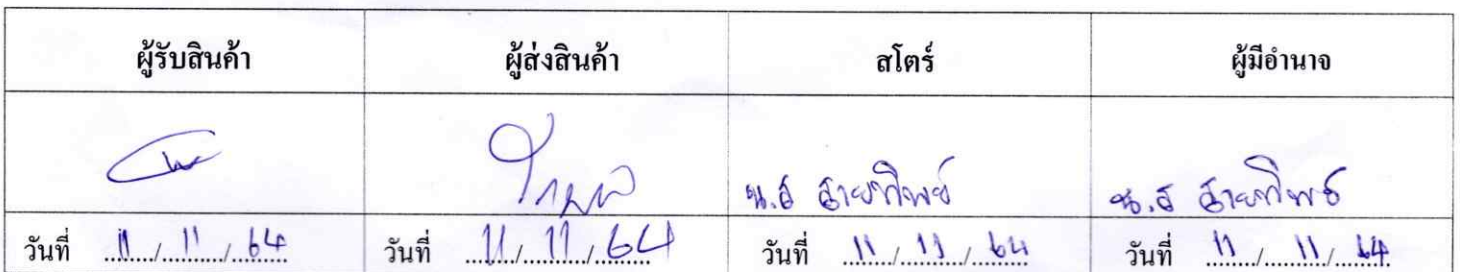 ผู้รับสินค้า ผู้ส่งสินค้า สโตร์ ผู้มีอำนาจ
น.ส สายทิพย์ น.ส สายทิพย์
วันที่ 11/11/64 วันที่ 11/11/64 วันที่ 11/11/64 วันที่ 11/11/64